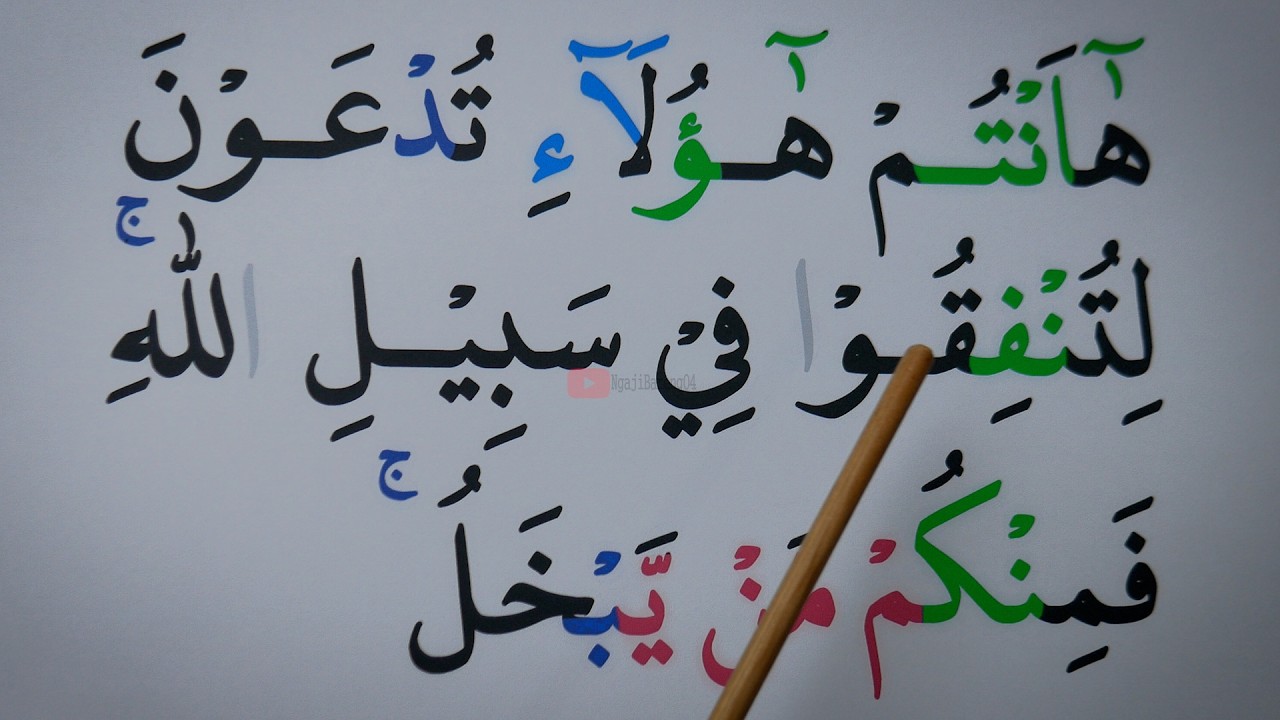 هٰٓاَنْتُمْ هٰٓؤُلَاۤءِ تُدْعَوْنَ
لِتُنْفِقُوْا فِيْ سَبِيْلِ اللّٰهِ ۚ
فَمِنْكُمْ مَنْ يَّبْخَلُ ۚ
NgajiBareng04